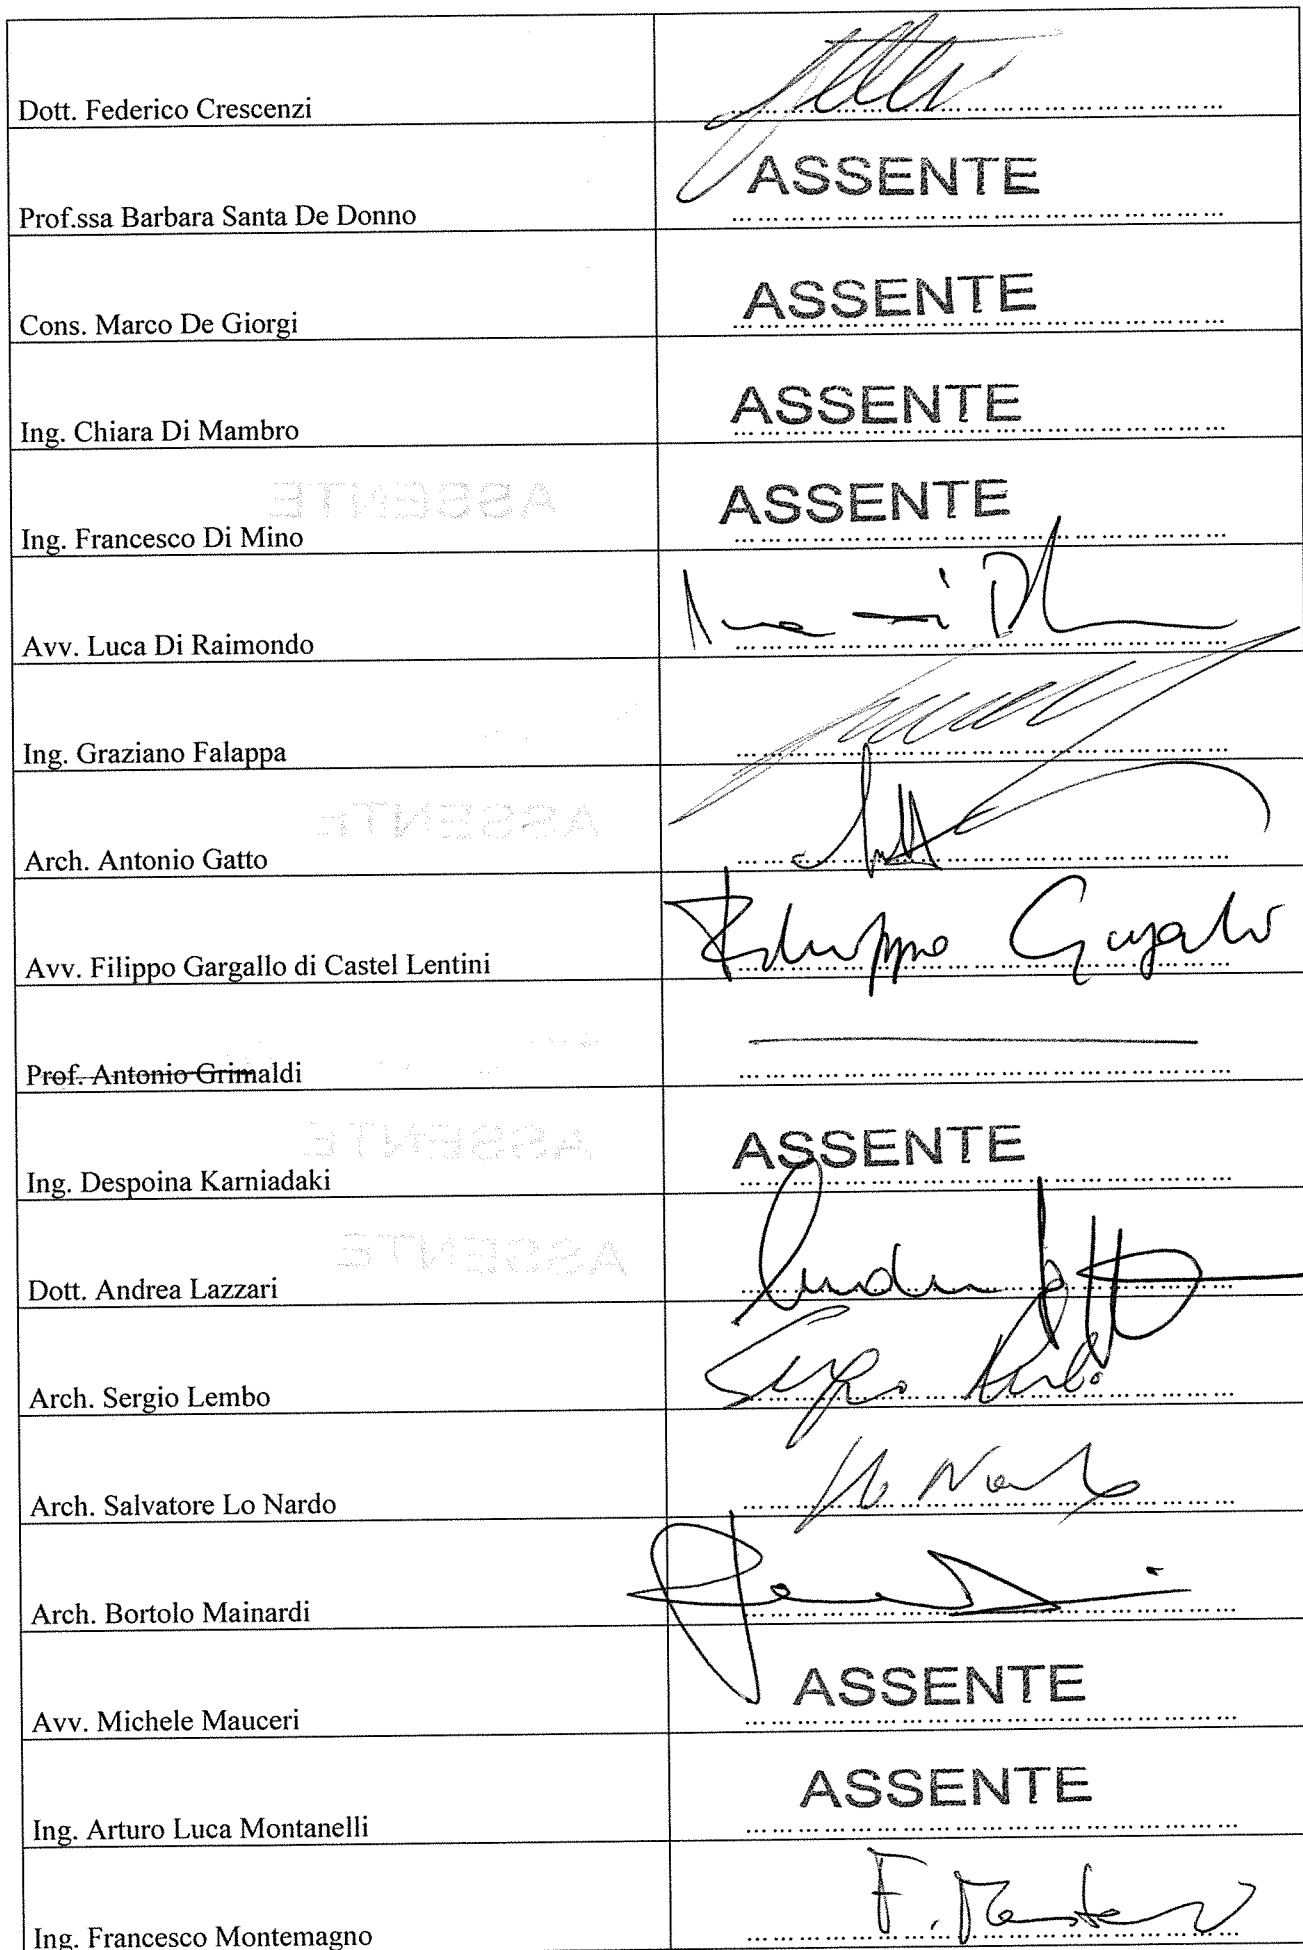 Dott. Federico Crescenzi
Prof.ssa Barbara Santa De Donno ASSENTE
Cons. Marco De Giorgi ASSENTE
Ing. Chiara Di Mambro ASSENTE
Ing. Francesco Di Mino ASSENTE
Avv. Luca Di Raimondo
Ing. Graziano Falappa
Arch. Antonio Gatto
Avv. Filippo Gargallo di Castel Lentini Filippo Gargallo
Prof. Antonio Grimaldi
Ing. Despoina Karniadaki ASSENTE
Dott. Andrea Lazzari
Arch. Sergio Lembo Sergio Lembo
Arch. Salvatore Lo Nardo Lo Nardo
Arch. Bortolo Mainardi
Avv. Michele Mauceri ASSENTE
Ing. Arturo Luca Montanelli ASSENTE
Ing. Francesco Montemagno